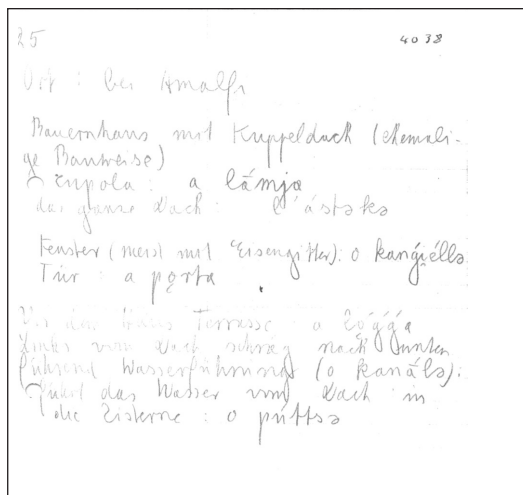 25 4038
Ort : bei Amalfi
Bauernhaus mit Kuppeldach (ehemali-
ge Bauweise)
Cupola : a lámja
das ganze Dach : l'ástəkə
Fenster (meist mit Eisengitter): o kangiéllə
Tür : a pǫrta
Vor dem Haus Terrasse : a
Links vom Dach schräg nach unten
führend Wasserführung (o kanálə):
Führt das Wasser vom Dach in
die Zisterne : o púttsə